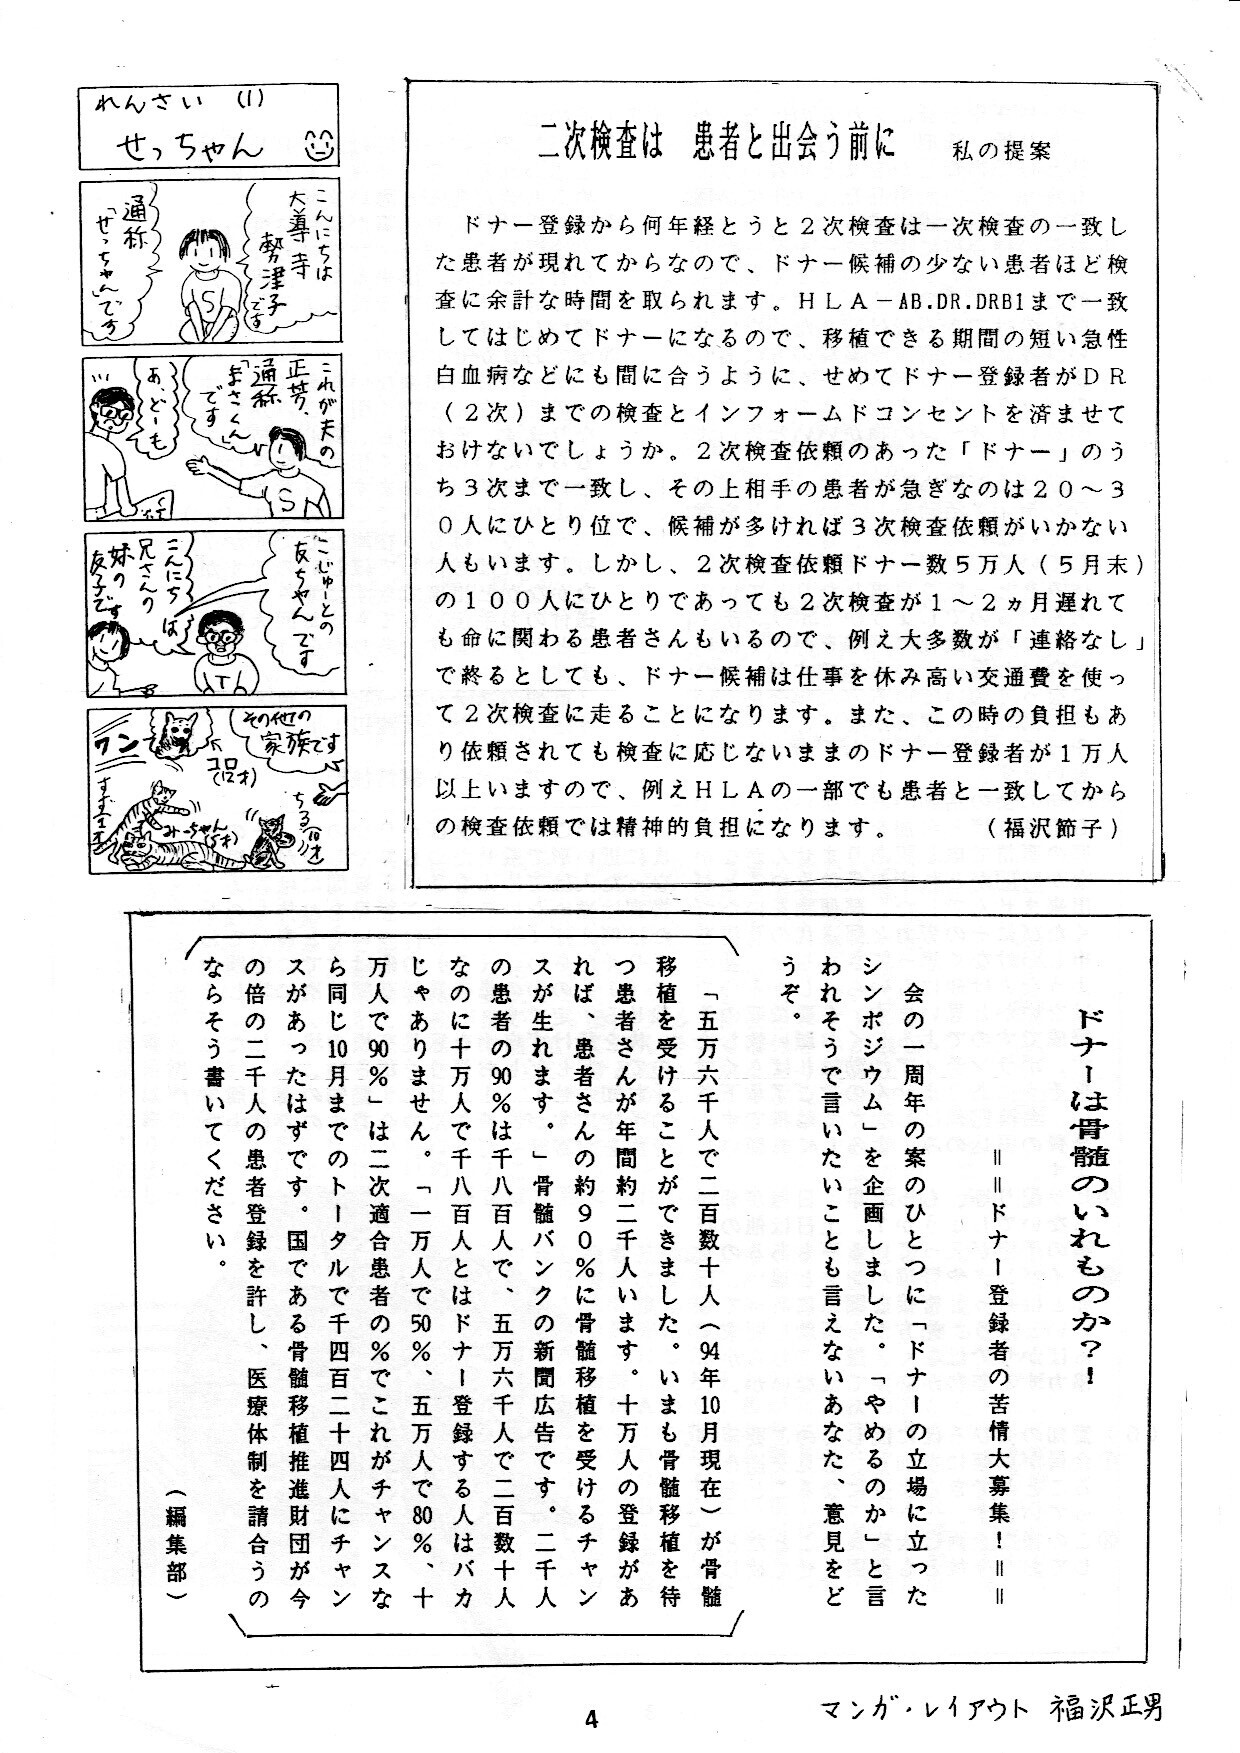 れんさい (1)
せっちゃん
こんにちは
大善寺
勢津子
です
通称
「せっちゃん」です
これが夫の
正芳、
通称
「まさくん」
です
あ、どーも
こじゅーとの
友ちゃんです
こんにちは
兄さんの
妹の
友子です
その他の
家族です
ワン
コロ
(12才)
みーちゃん
(5才)
ちる(10才)
すず(1才)
二次検査は 患者と出会う前に 私の提案
ドナー登録から何年経とうと2次検査は一次検査の一致し
た患者が現れてからなので、ドナー候補の少ない患者ほど検
査に余計な時間を取られます。HLA－AB.DR.DRB1まで一致
してはじめてドナーになるので、移植できる期間の短い急性
白血病などにも間に合うように、せめてドナー登録者がDR
(2次)までの検査とインフォームドコンセントを済ませて
おけないでしょうか。2次検査依頼のあった「ドナー」のう
ち3次まで一致し、その上相手の患者が急ぎなのは20～3
0人にひとり位で、候補が多ければ3次検査依頼がいかない
人もいます。しかし、2次検査依頼ドナー数5万人(5月末)
の100人にひとりであっても2次検査が1～2ヵ月遅れて
も命に関わる患者さんもいるので、例え大多数が「連絡なし」
で終るとしても、ドナー候補は仕事を休み高い交通費を使っ
て2次検査に走ることになります。また、この時の負担もあ
り依頼されても検査に応じないままのドナー登録者が1万人
以上いますので、例えHLAの一部でも患者と一致してから
の検査依頼では精神的負担になります。 (福沢節子)
ドナーは骨髄のいれものか?!
==ドナー登録者の苦情大募集!==
会の一周年の案のひとつに「ドナーの立場に立った
シンポジウム」を企画しました。「やめるのか」と言
われそうで言いたいことも言えないあなた、意見をど
うぞ。
「五万六千人で二百数十人(94年10月現在)が骨髄
移植を受けることができました。いまも骨髄移植を待
つ患者さんが年間約二千人います。十万人の登録があ
れば、患者さんの約90%に骨髄移植を受けるチャン
スが生れます。」骨髄バンクの新聞広告です。二千人
の患者の90%は千八百人で、五万六千人で二百数十人
なのに十万人で千八百人とはドナー登録する人はバカ
じゃありません。「一万人で50%、五万人で80%、十
万人で90%」は二次適合患者の%でこれがチャンスな
ら同じ10月までのトータルで千四百二十四人にチャン
スがあったはずです。国である骨髄移植推進財団が今
の倍の二千人の患者登録を許し、医療体制を請合うの
ならそう書いてください。
(編集部)
マンガ・レイアウト 福沢正男
4